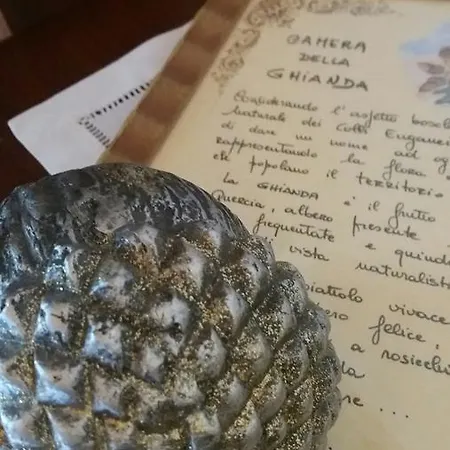 CAMERA
DELLA
GHIANDA
Considerando l'aspetto bosch
naturale dei Colli Euganei
di dare un nome ad og
rappresentando la flora e
che popolano il territorio
La GHIANDA è il frutto
Quercia, albero presente
frequentate e quindi
vista naturalist
viatolo vivace
felice,
a rosicchi
la
ne ...